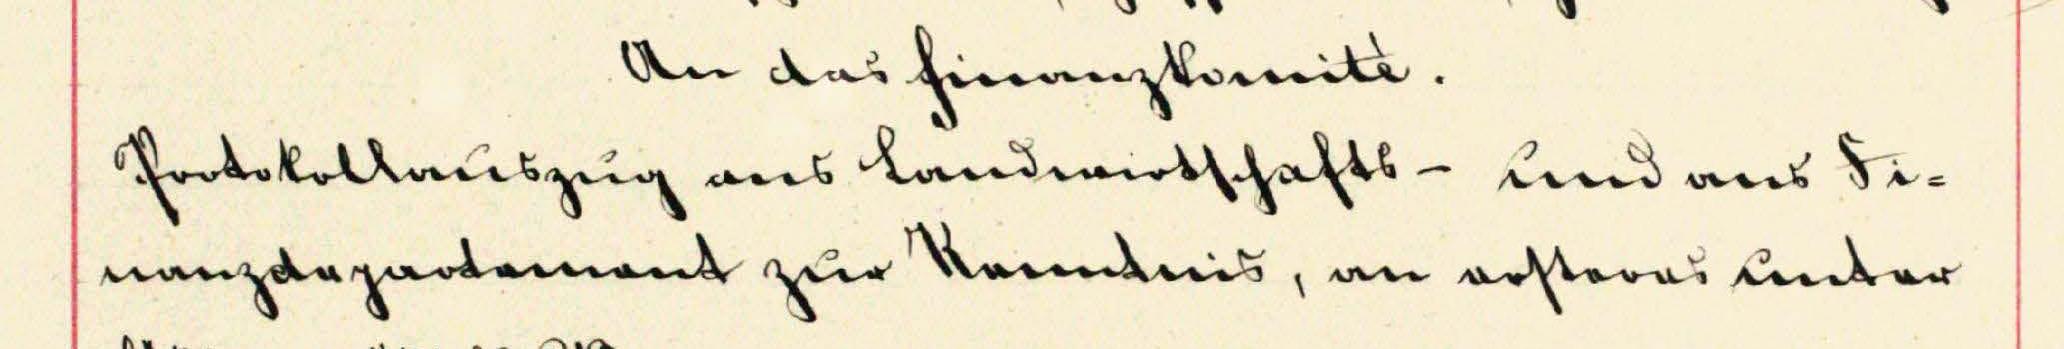 An das Finanzkomitè.
Protokollauszug ans Landwirtschafts- und ans Fi-
nanzdepartement zur Kenntnis, an ersteres unter